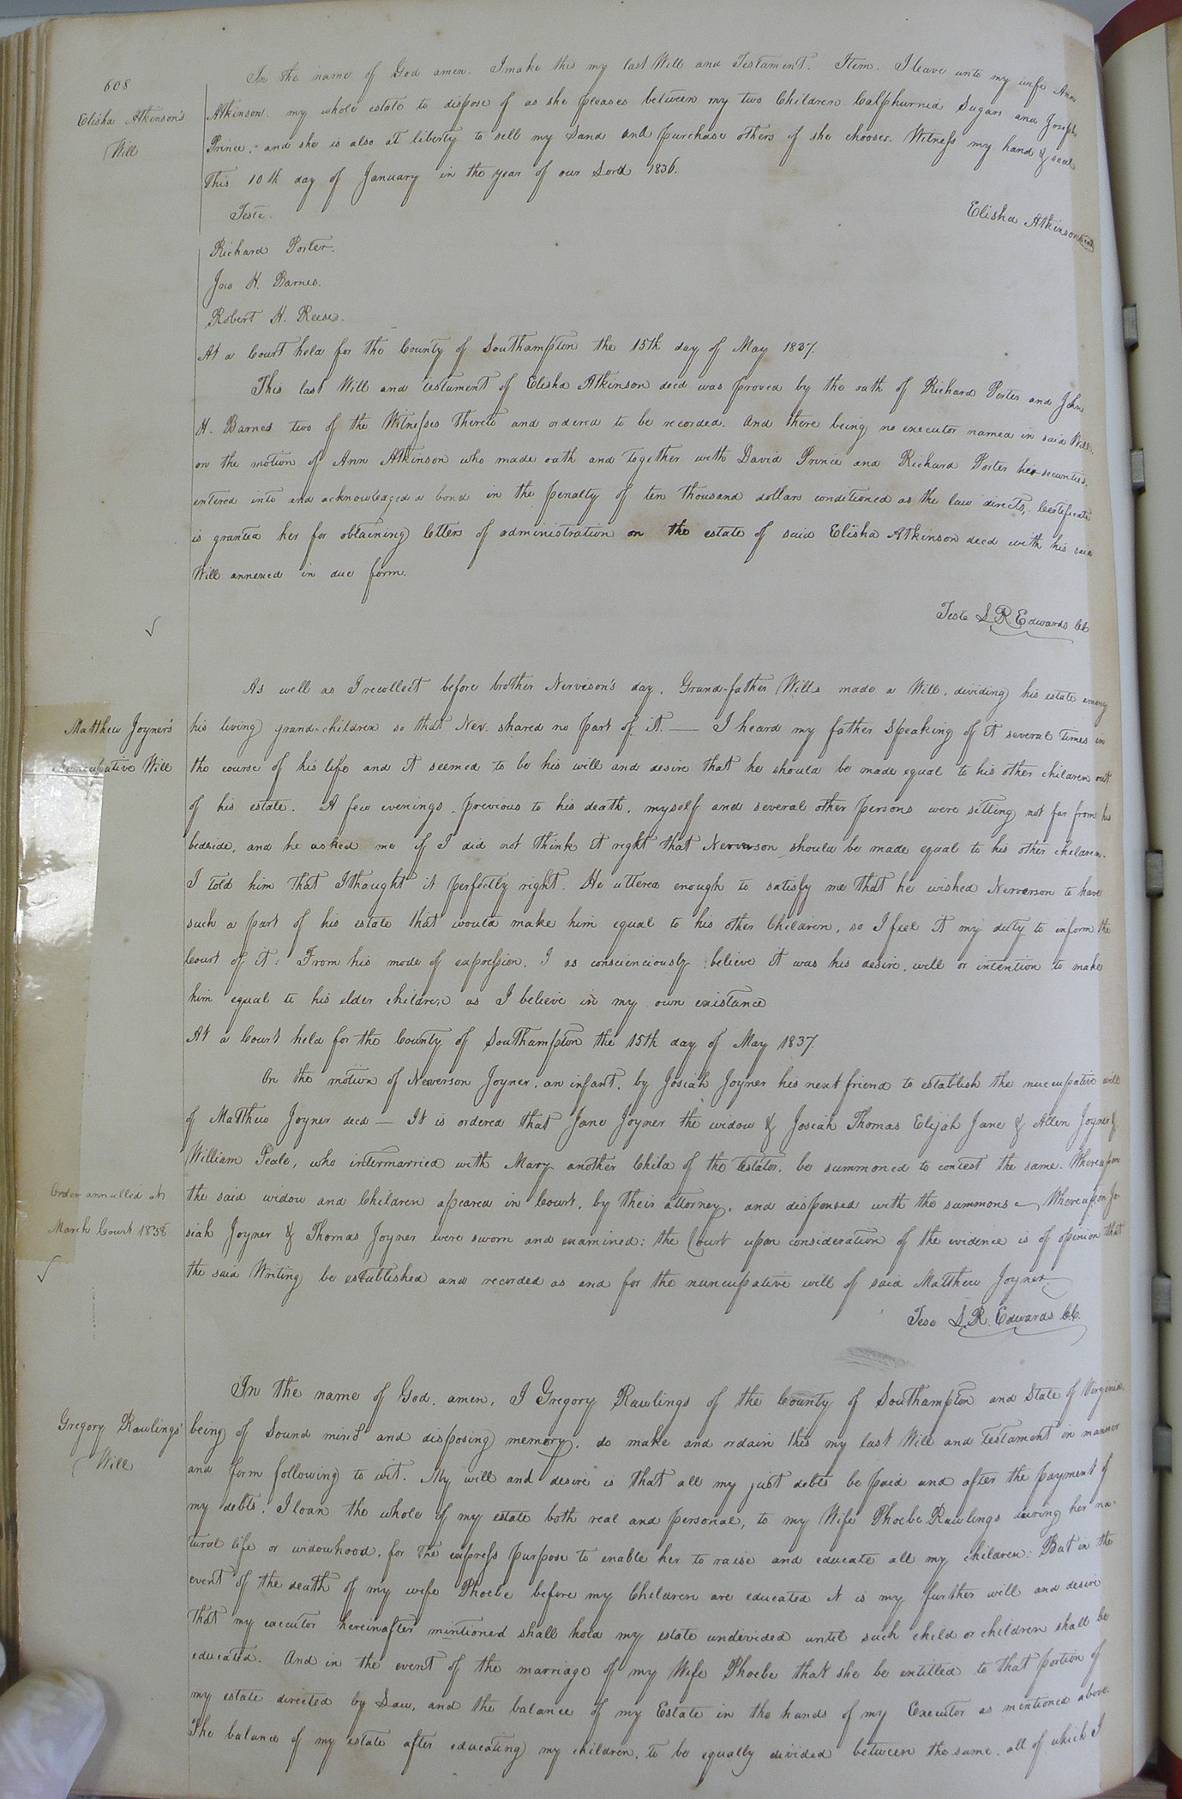 608
Elisha Atkinson's
Will
In the name of God amen. I make this my last Will and Testament. Item. I leave unto my wife Ann
Atkinson my whole estate to dispose of as she pleases between my two Children Calphurnia Sugars and Joseph
Prince, and she is also at liberty to sell my Land and purchase others if she chooses. Witness my hand & seal
This 10th day of January in the year of our Lord 1836.
Elisha Atkinson
Teste.
Richard Porter.
Jno H. Barnes.
Robert H. Reese.
At a Court held for the County of Southampton the 15th day of May 1837.
This last Will and testament of Elisha Atkinson decd was proved by the oath of Richard Porter and John
H. Barnes two of the Witnesses thereto and ordered to be recorded. And there being no executor named in said Will,
on the motion of Ann Atkinson who made oath and together with David Prince and Richard Porter her securities,
entered into and acknowledged a bond in the penalty of ten thousand dollars conditioned as the law directs, Certificate
is granted her for obtaining letters of administration on the estate of said Elisha Atkinson decd with his said
Will annexed in due form.
Teste L R Edwards CC
Matthew Joyner's
Nuncupative Will
As well as I recollect before brother Nerverson's day, Grand-father Wills made a Will, dividing his estate among
his living grand-children so that Nev. shared no part of it. — I heard my father speaking of it several times in
the course of his life and it seemed to be his will and desire that he should be made equal to his other children out
of his estate. A few evenings previous to his death, myself and several other persons were sitting not far from his
bedside, and he asked me if I did not think it right that Nerverson should be made equal to his other children.
I told him that I thought it perfectly right. He uttered enough to satisfy me that he wished Nerverson to have
such a part of his estate that would make him equal to his other Children, so I feel it my duty to inform the
Court of it: From his mode of expression, I as conscienciously believe it was his desire, will or intention to make
him equal to his elder children as I believe in my own existance
At a Court held for the County of Southampton the 15th day of May 1837.
On the motion of Newerson Joyner, an infant, by Josiah Joyner his next friend to establish the nuncupative will
of Matthew Joyner decd — It is ordered that Jane Joyner the widow & Josiah Thomas Elijah Jane & Allen Joyner &
William Peale, who intermarried with Mary another Child of the Testator, be summoned to contest the same. Whereupon
the said widow and Children apeared in Court, by their attorney, and dispensed with the summons — Whereupon Jo-
siah Joyner & Thomas Joyner were sworn and examined: the Court upon consideration of the evidence is of opinion that
the said Writing be established and recorded as and for the nuncupative will of said Matthew Joyner.
Order annulled at
March Court 1838
Teste L. R. Edwards C.C.
Gregory Rawlings'
Will
In the name of God, amen, I Gregory Rawlings of the County of Southampton and State of Virginia,
being of Sound mind and disposing memory, do make and ordain this my last Will and Testament in manner
and form following to wit. My will and desire is that all my just debts be paid and after the payment of
my debts, I loan the whole of my estate both real and personal, to my Wife Phoebe Rawlings during her na-
tural life or widowhood, for the express purpose to enable her to raise and educate all my children: But in the
event of the death of my wife Phoebe before my Children are educated it is my further will and desire
that my executor hereinafter mintioned shall hold my estate undevided until such child or children shall be
educated. And in the event of the marriage of my Wife Phoebe that she be entitled to that portion of
my estate directed by Law, and the balance of my Estate in the hands of my Executor as mentioned above.
The balance of my estate after educating my children, to be equally divided between the same, all of which I